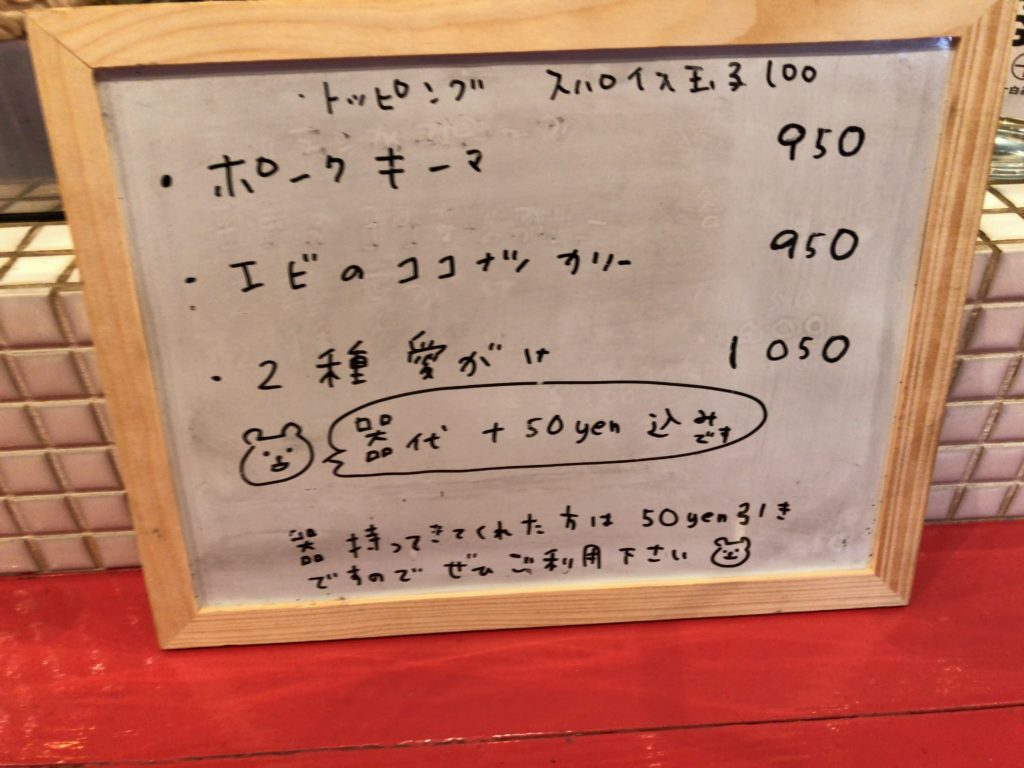 ・トッピング スパイス玉子 100
・ポークキーマ 950
・エビのココナツカリー 950
・2種愛がけ 1050
器代 +50yen 込みです
器持ってきてくれた方は 50yen引き
ですので ぜひ ご利用下さい